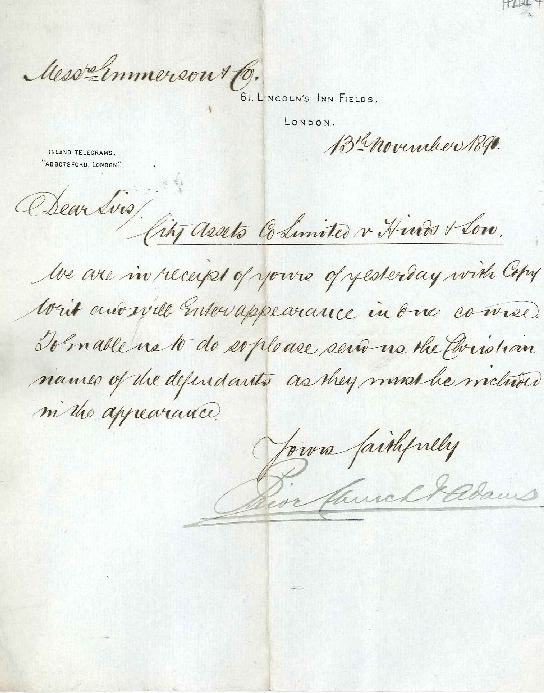 Messrs Emmerson & Co.
61, LINCOLN'S INN FIELDS,
LONDON.
13th November 1890.
INLAND TELEGRAMS.
"ABBOTSFORD, LONDON"
Dear Sirs/
City Assets Co Limited v Hinds & Son.
We are in receipt of yours of yesterday with Copy
Writ and will Enter appearance in due course.
To Enable us to do so please send us the Christian
names of the defendants as they must be included
in the appearance.
Yours faithfully
Prior Church & Adams